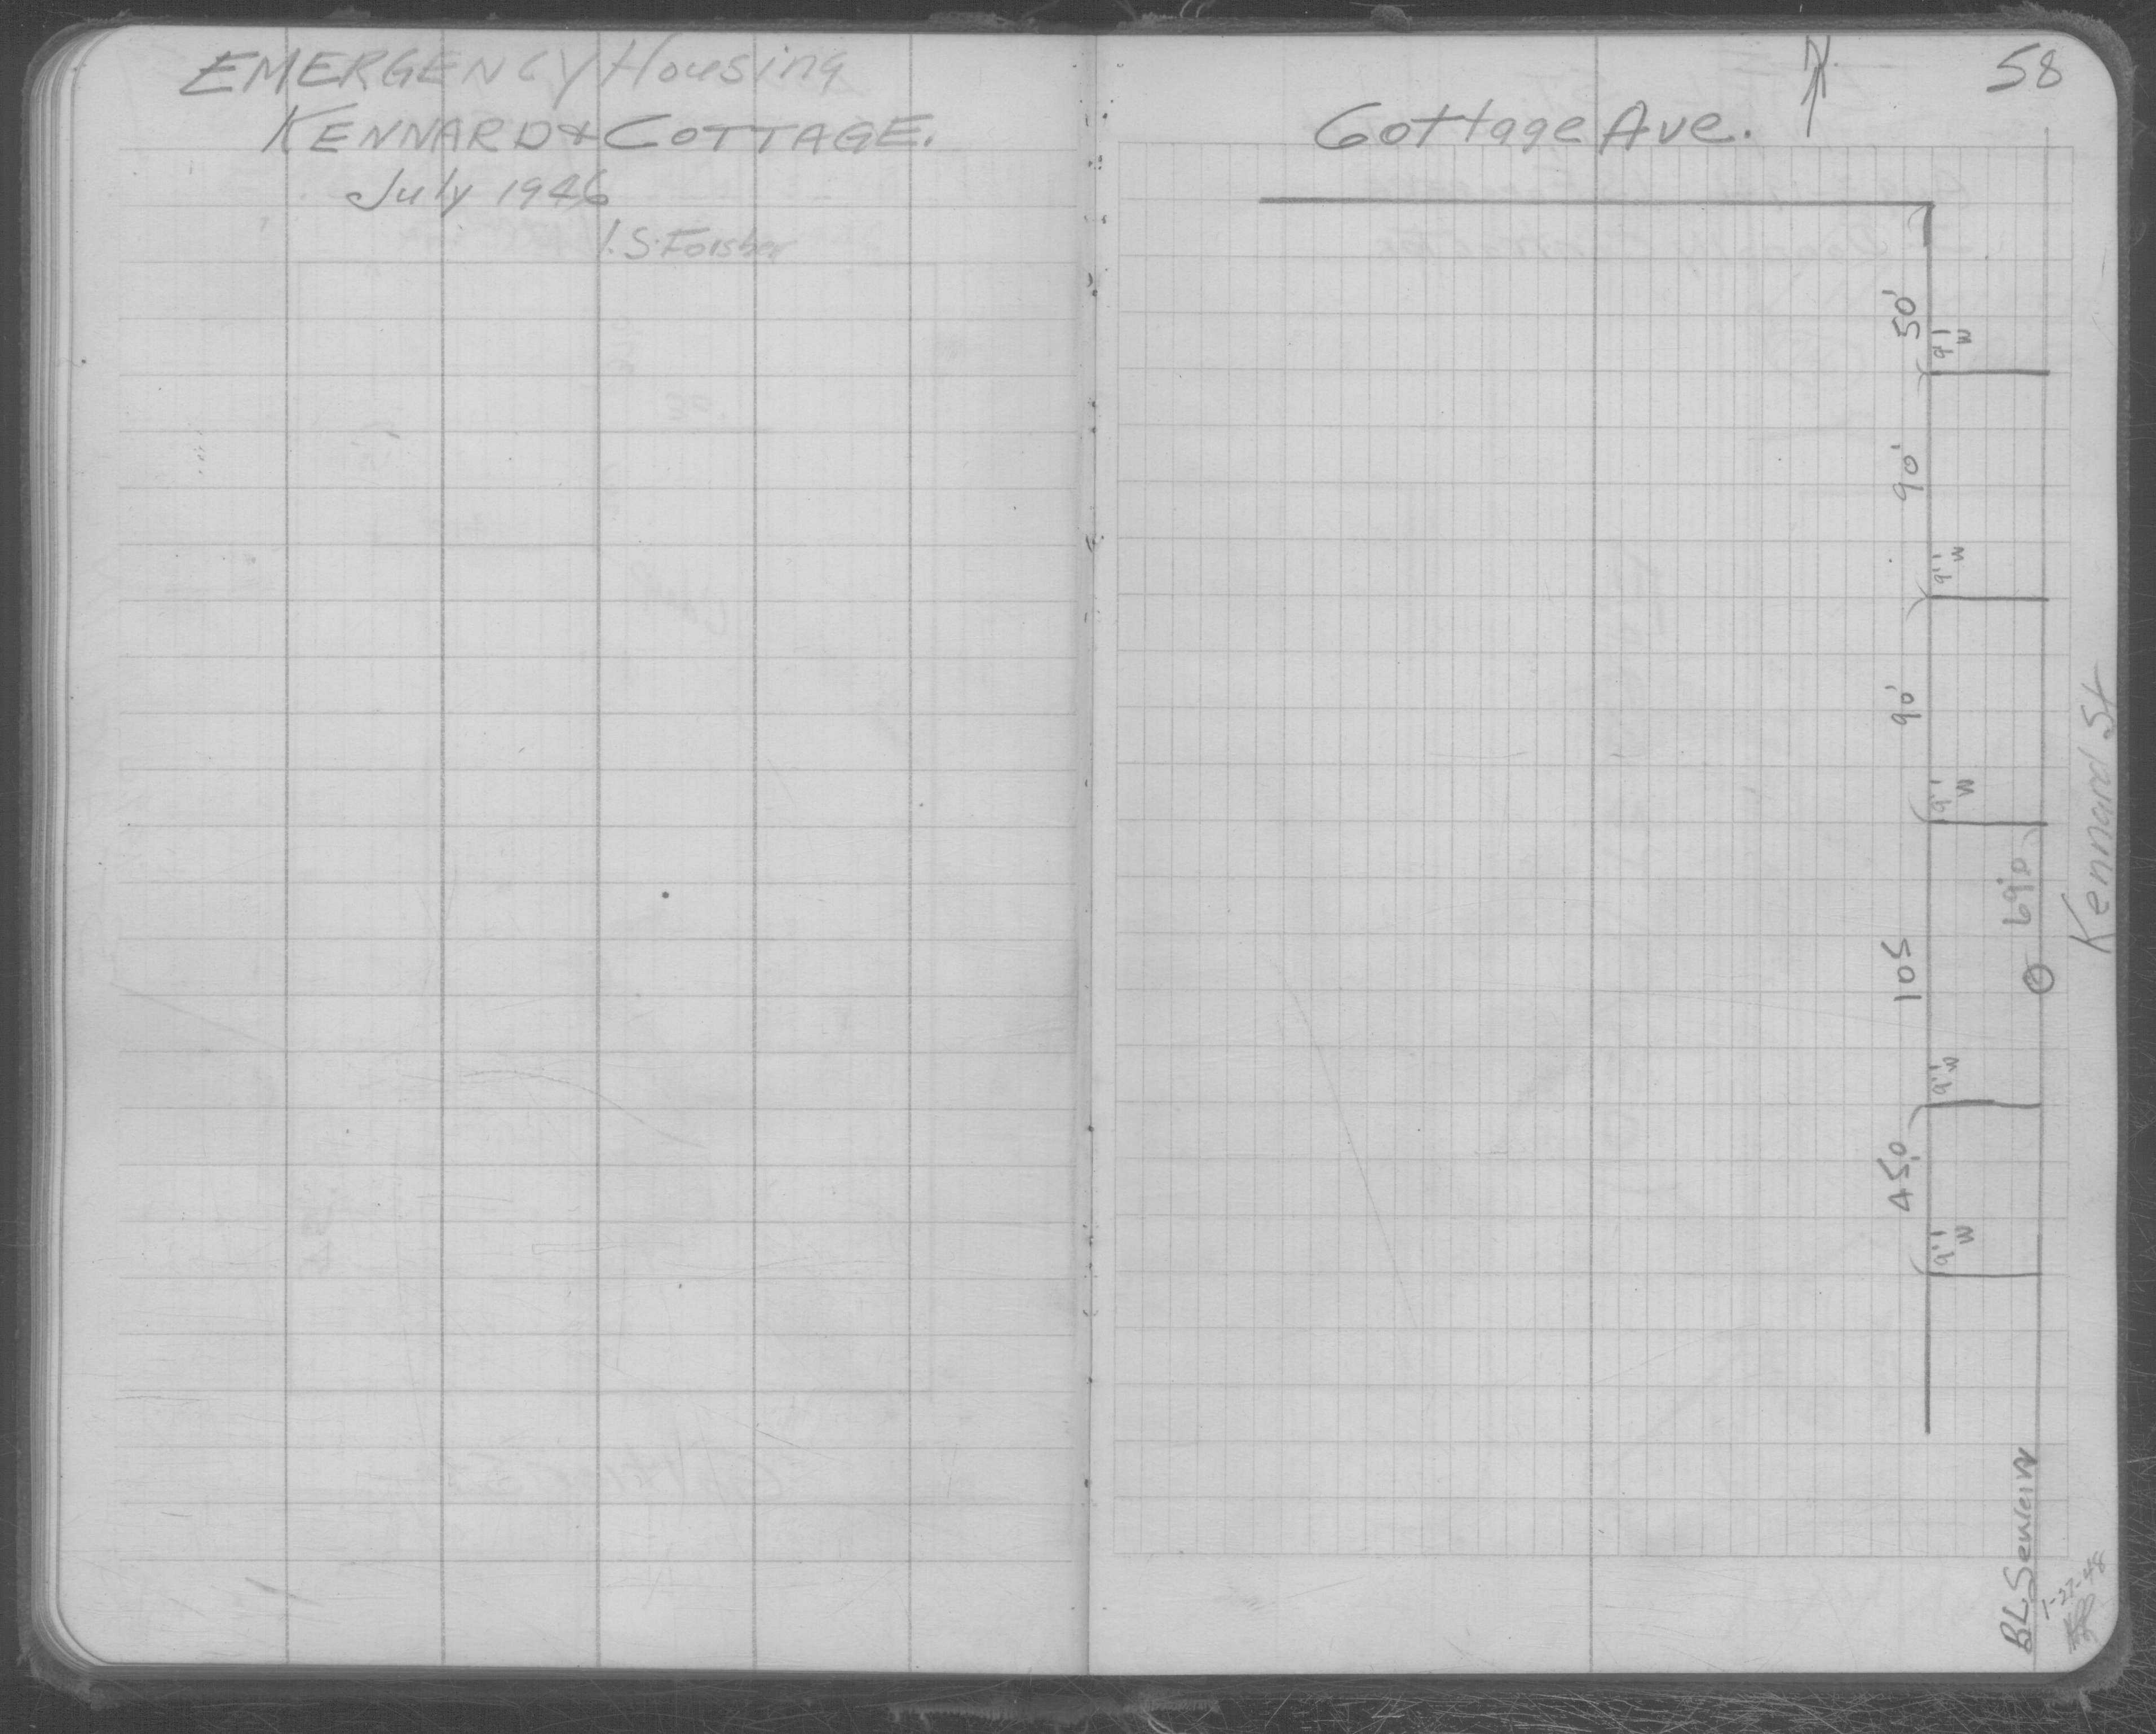 EMERGENCY Housing
KENNARD & COTTAGE.
July 1946
I. S. Forsber
58
N
Cottage Ave.
50'
9' W
90'
9' W
90'
9' W
69.0
Kennard St
105
9' W
45.0
9' W
BL Sewer in
1-27-48